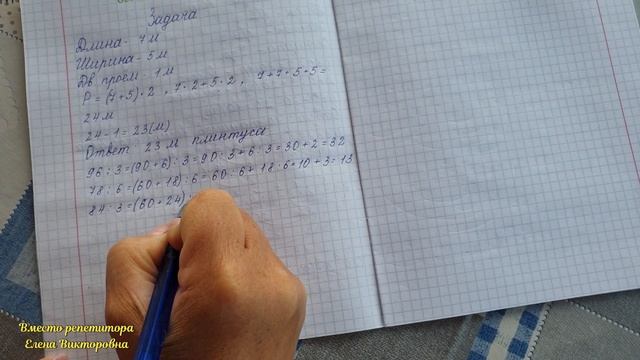 Задача
Длина - 7 м
Ширина - 5 м
Дв. проём - 1 м
P = (7+5)·2, 7·2+5·2, 7+7+5+5=
24 м
24-1=23(м)
Ответ: 23 м плинтуса
96:3=(90+6):3=90:3+6:3=30+2=32
78:6=(60+18):6=60:6+18:6=10+3=13
84:3=(60+24)
Вместо репетитора
Елена Викторовна